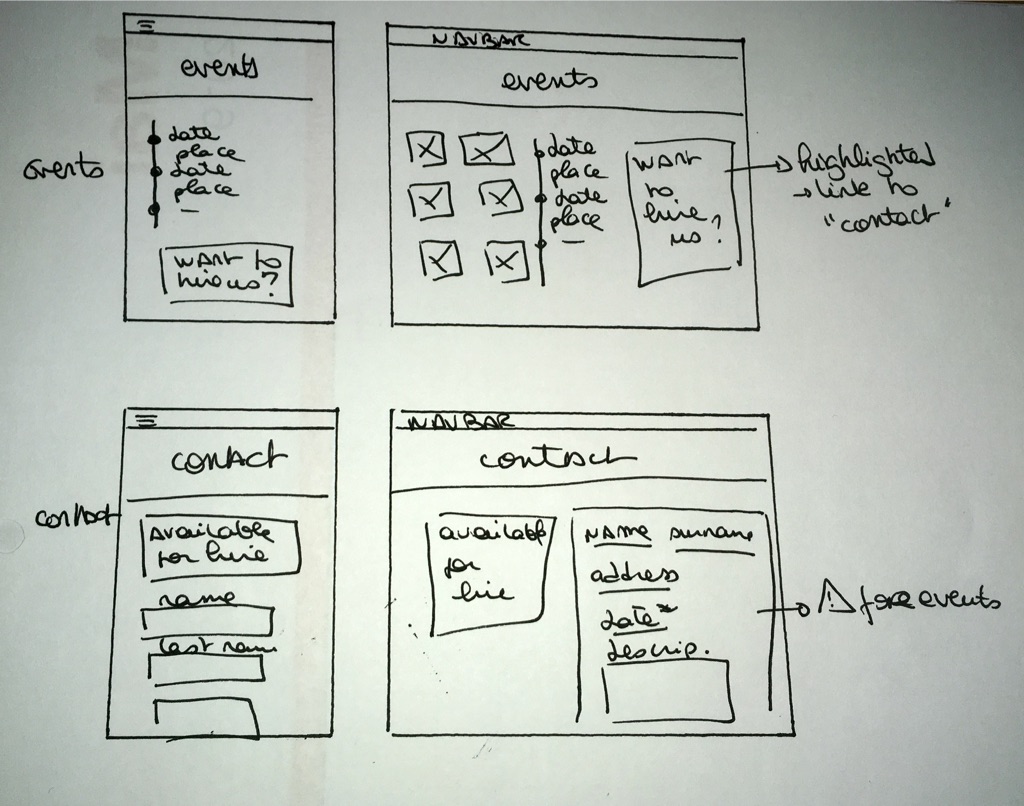 events
events
date
place
date
place
want to
hire us?
NAVBAR
events
date
place
date
place
want
to
hire
us?
highlighted
link to
"contact"
contact
contact
available
for hire
name
last name
NAVBAR
contact
available
for
hire
name surname
address
date*
descrip.
events